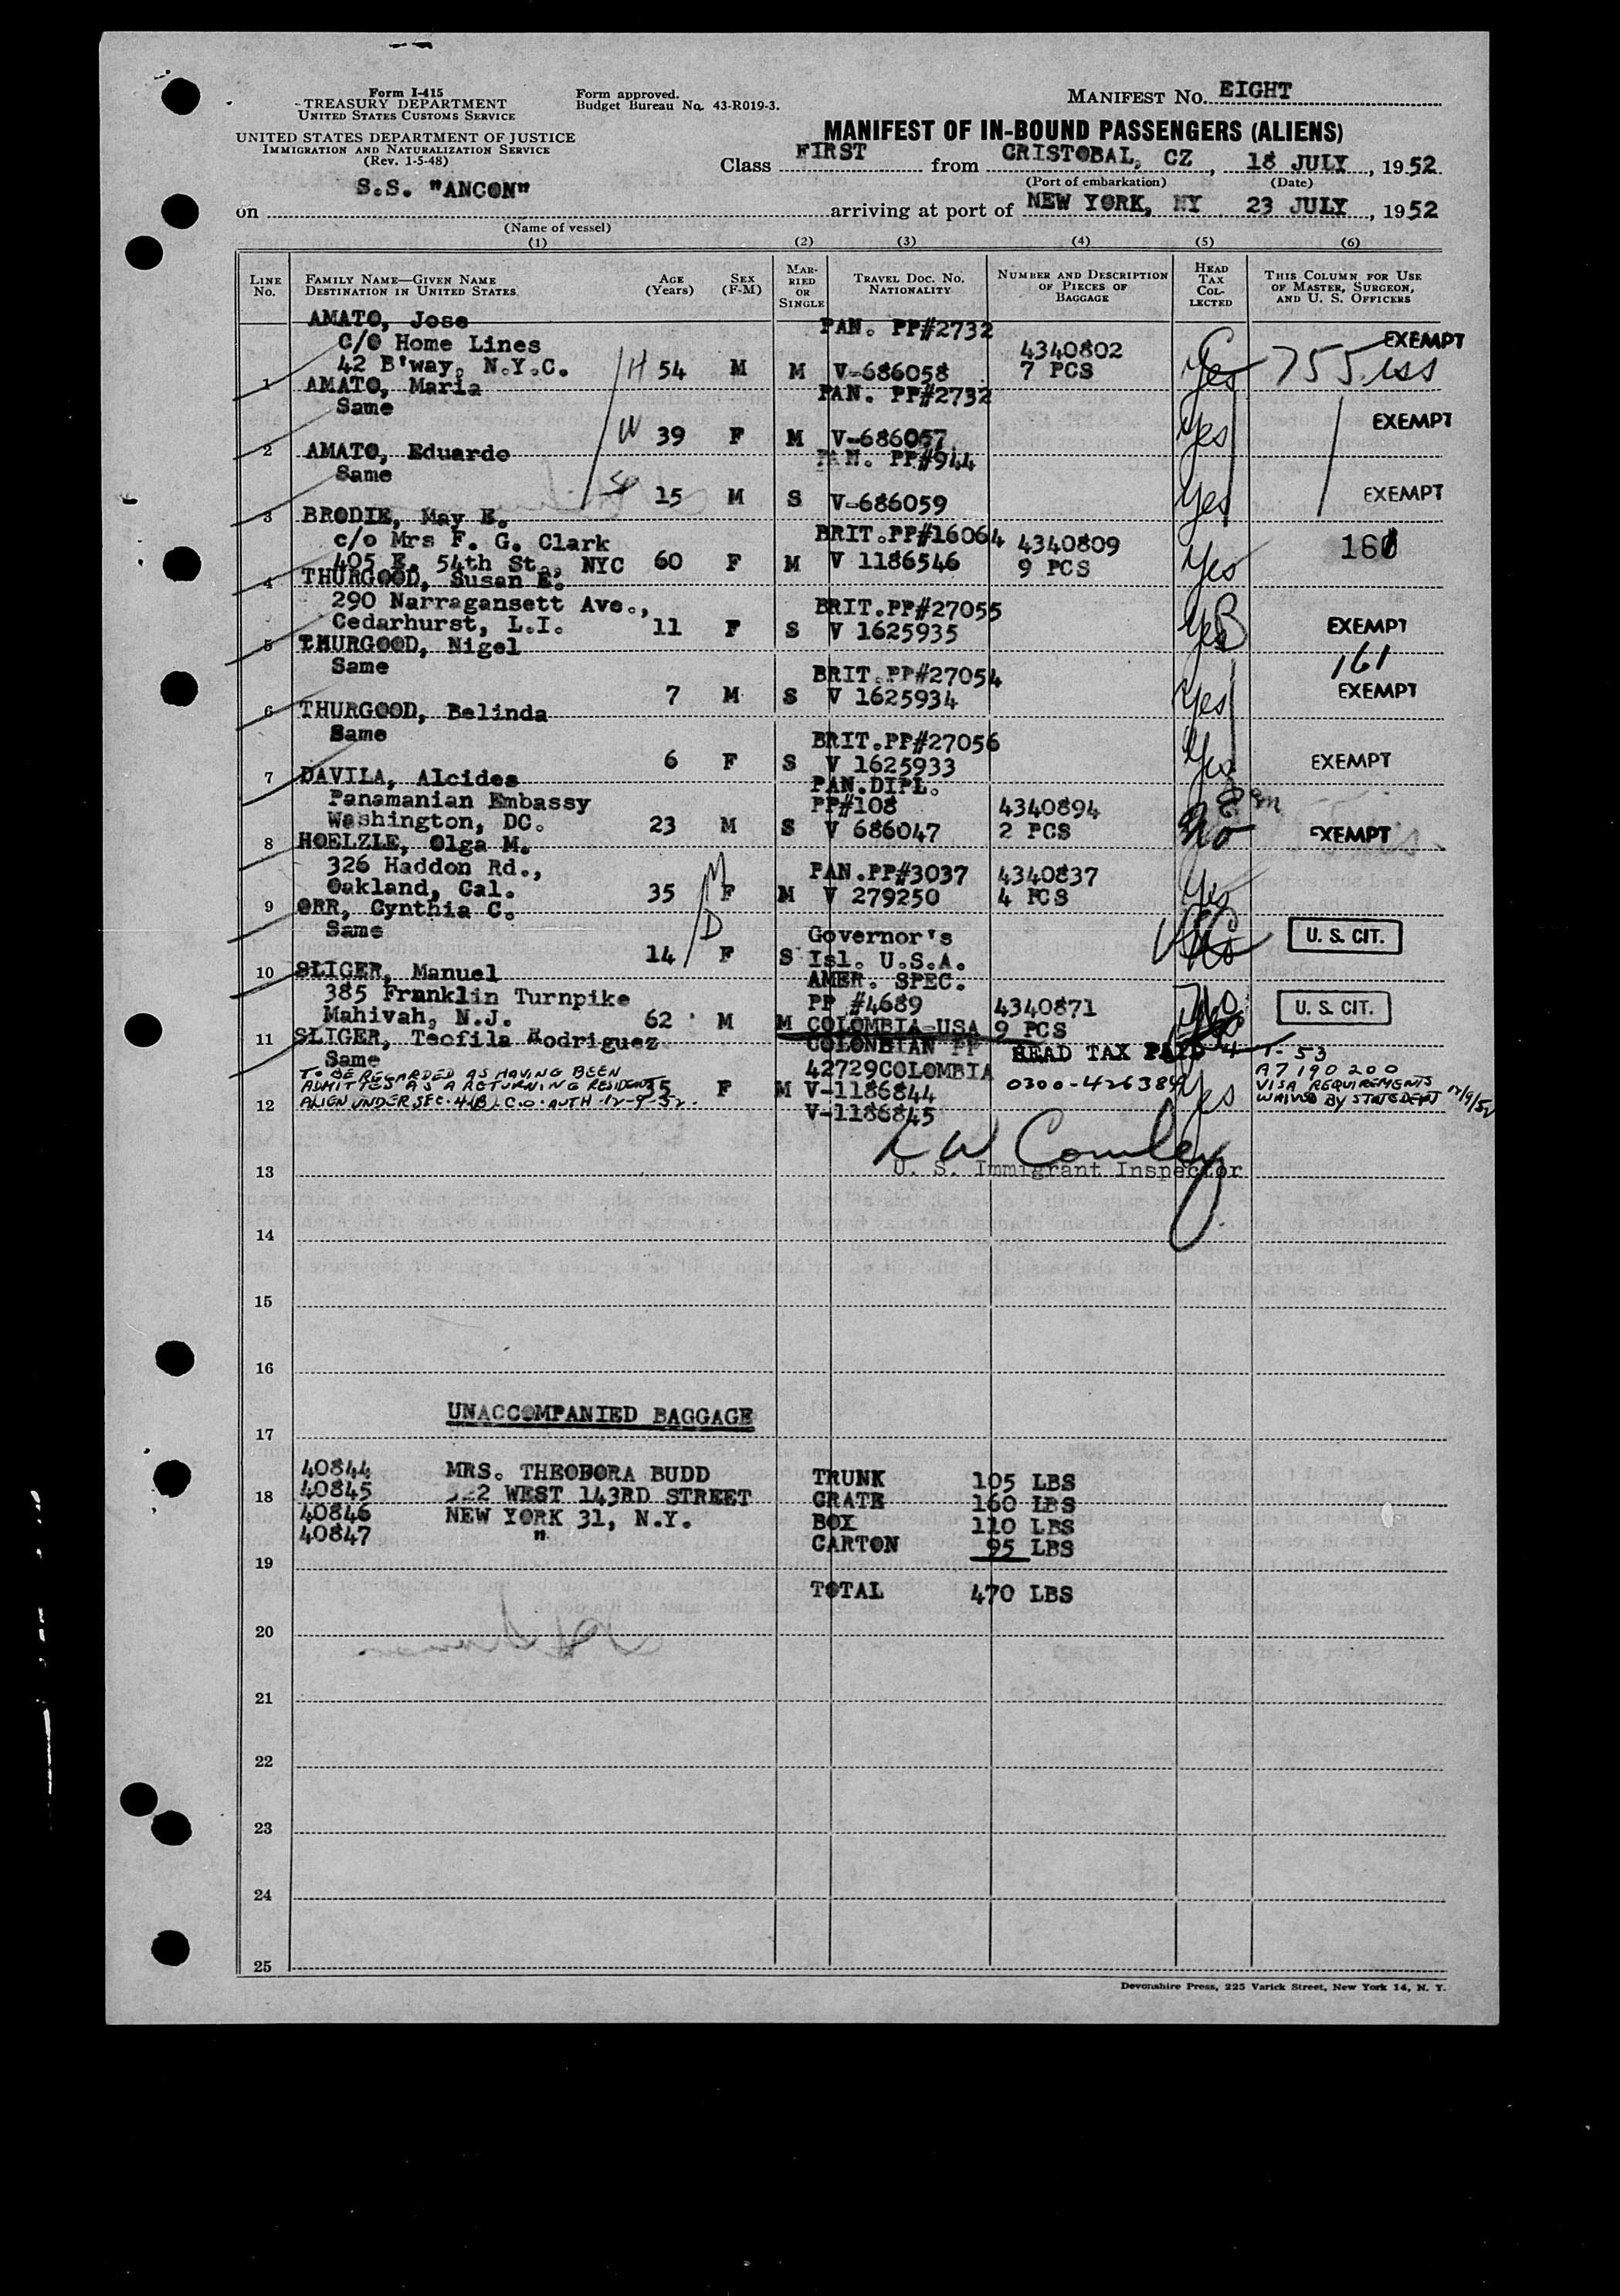 Form I-415
TREASURY DEPARTMENT
UNITED STATES CUSTOMS SERVICE
UNITED STATES DEPARTMENT OF JUSTICE
IMMIGRATION AND NATURALIZATION SERVICE
(Rev. 1-5-48)
Form approved.
Budget Bureau No. 43-R019-3.
MANIFEST NO. EIGHT
MANIFEST OF IN-BOUND PASSENGERS (ALIENS)
Class FIRST from CRISTOBAL, CZ, 18 JULY, 1952
(Port of embarkation) (Date)
on S.S. "ANCON" arriving at port of NEW YORK, NY 23 JULY, 1952
(Name of vessel)
(1) (2) (3) (4) (5) (6)
LINE NO. FAMILY NAME—GIVEN NAME DESTINATION IN UNITED STATES AGE (Years) SEX (F-M) MARRIED OR SINGLE TRAVEL DOC. NO. NATIONALITY NUMBER AND DESCRIPTION OF PIECES OF BAGGAGE HEAD TAX COLLECTED THIS COLUMN FOR USE OF MASTER, SURGEON, AND U. S. OFFICERS
AMATO, Jose PAN. PP#2732 EXEMPT
C/O Home Lines 4340802
1 42 B'way, N.Y.C. H 54 M M V-686058 7 PCS Yes 755
AMATO, Maria PAN. PP#2732
Same EXEMPT
2 W 39 F M V-686057 Yes
AMATO, Eduardo PAN. PP#944
Same
3 15 M S V-686059 Yes EXEMPT
BRODIE, May E. BRIT.PP#16064
c/o Mrs F. G. Clark 4340809
4 405 E. 54th St., NYC 60 F M V 1186546 9 PCS Yes 160
THURGOOD, Susan E.
290 Narragansett Ave., BRIT.PP#27055
5 Cedarhurst, L.I. 11 F S V 1625935 Yes B EXEMPT
THURGOOD, Nigel 161
Same BRIT.PP#27054
6 7 M S V 1625934 Yes EXEMPT
THURGOOD, Belinda
Same BRIT.PP#27056
7 6 F S V 1625933 Yes EXEMPT
DAVILA, Alcides PAN.DIPL.
Panamanian Embassy PP#108 4340894
8 Washington, DC. 23 M S V 686047 2 PCS No EXEMPT
HOELZLE, Olga M.
326 Haddon Rd., PAN.PP#3037 4340837
9 Oakland, Cal. 35 M F M V 279250 4 PCS Yes
ORR, Cynthia C.
Same Governor's U. S. CIT.
10 14 D F S Isl. U.S.A.
SLIGER, Manuel AMER. SPEC.
385 Franklin Turnpike PP #4689 4340871 U. S. CIT.
11 Mahivah, N.J. 62 M M COLOMBIA-USA 9 PCS
SLIGER, Teofila Rodriguez COLONBIAN PP HEAD TAX PAID T-53
Same 42729COLOMBIA A7190200
TO BE REGARDED AS HAVING BEEN
ADMITTED AS A RETURNING RESIDENT 35 F M V-1186844 0300-426384 Yes VISA REQUIREMENTS
12 ALIEN UNDER SEC. 4(B). C.O. AUTH. 12-9-52. V-1186845 WAIVED BY STATE DEPT 12/9/52
L W Comley
13 U. S. Immigrant Inspector
14
15
16
UNACCOMPANIED BAGGAGE
17
40844 MRS. THEODORA BUDD TRUNK 105 LBS
18 40845 WEST 143RD STREET CRATE 160 LBS
40846 NEW YORK 31, N.Y. BOX 110 LBS
40847 " CARTON 95 LBS
19
TOTAL 470 LBS
20
21
22
23
24
25
Devonshire Press, 225 Varick Street, New York 14, N. Y.